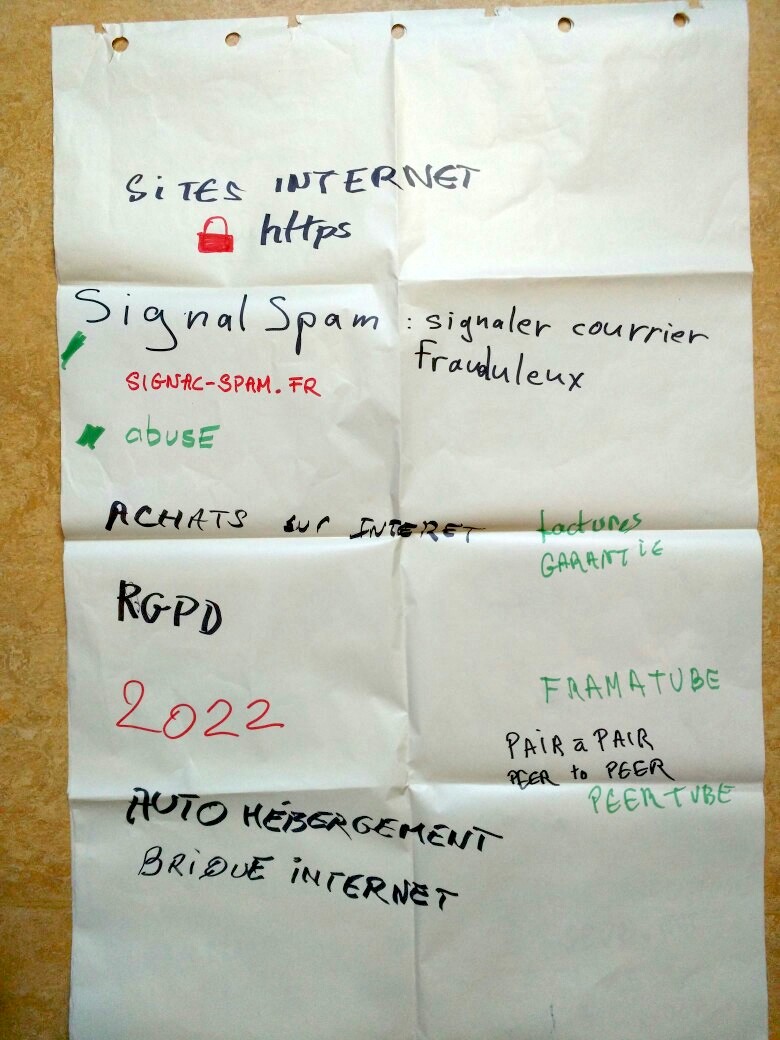 SiTES INTERNET
https
Signal Spam : signaler courrier
frauduleux
SIGNAC-SPAM.FR
abusE
ACHATS sur INTERET
factures
GARANTiE
RGPD
2022
FRAMATUBE
PAiR a PAIR
PEER to PEER
PEERTUBE
AUTO HÉBERGEMENT
BRiQUE iNTERNET